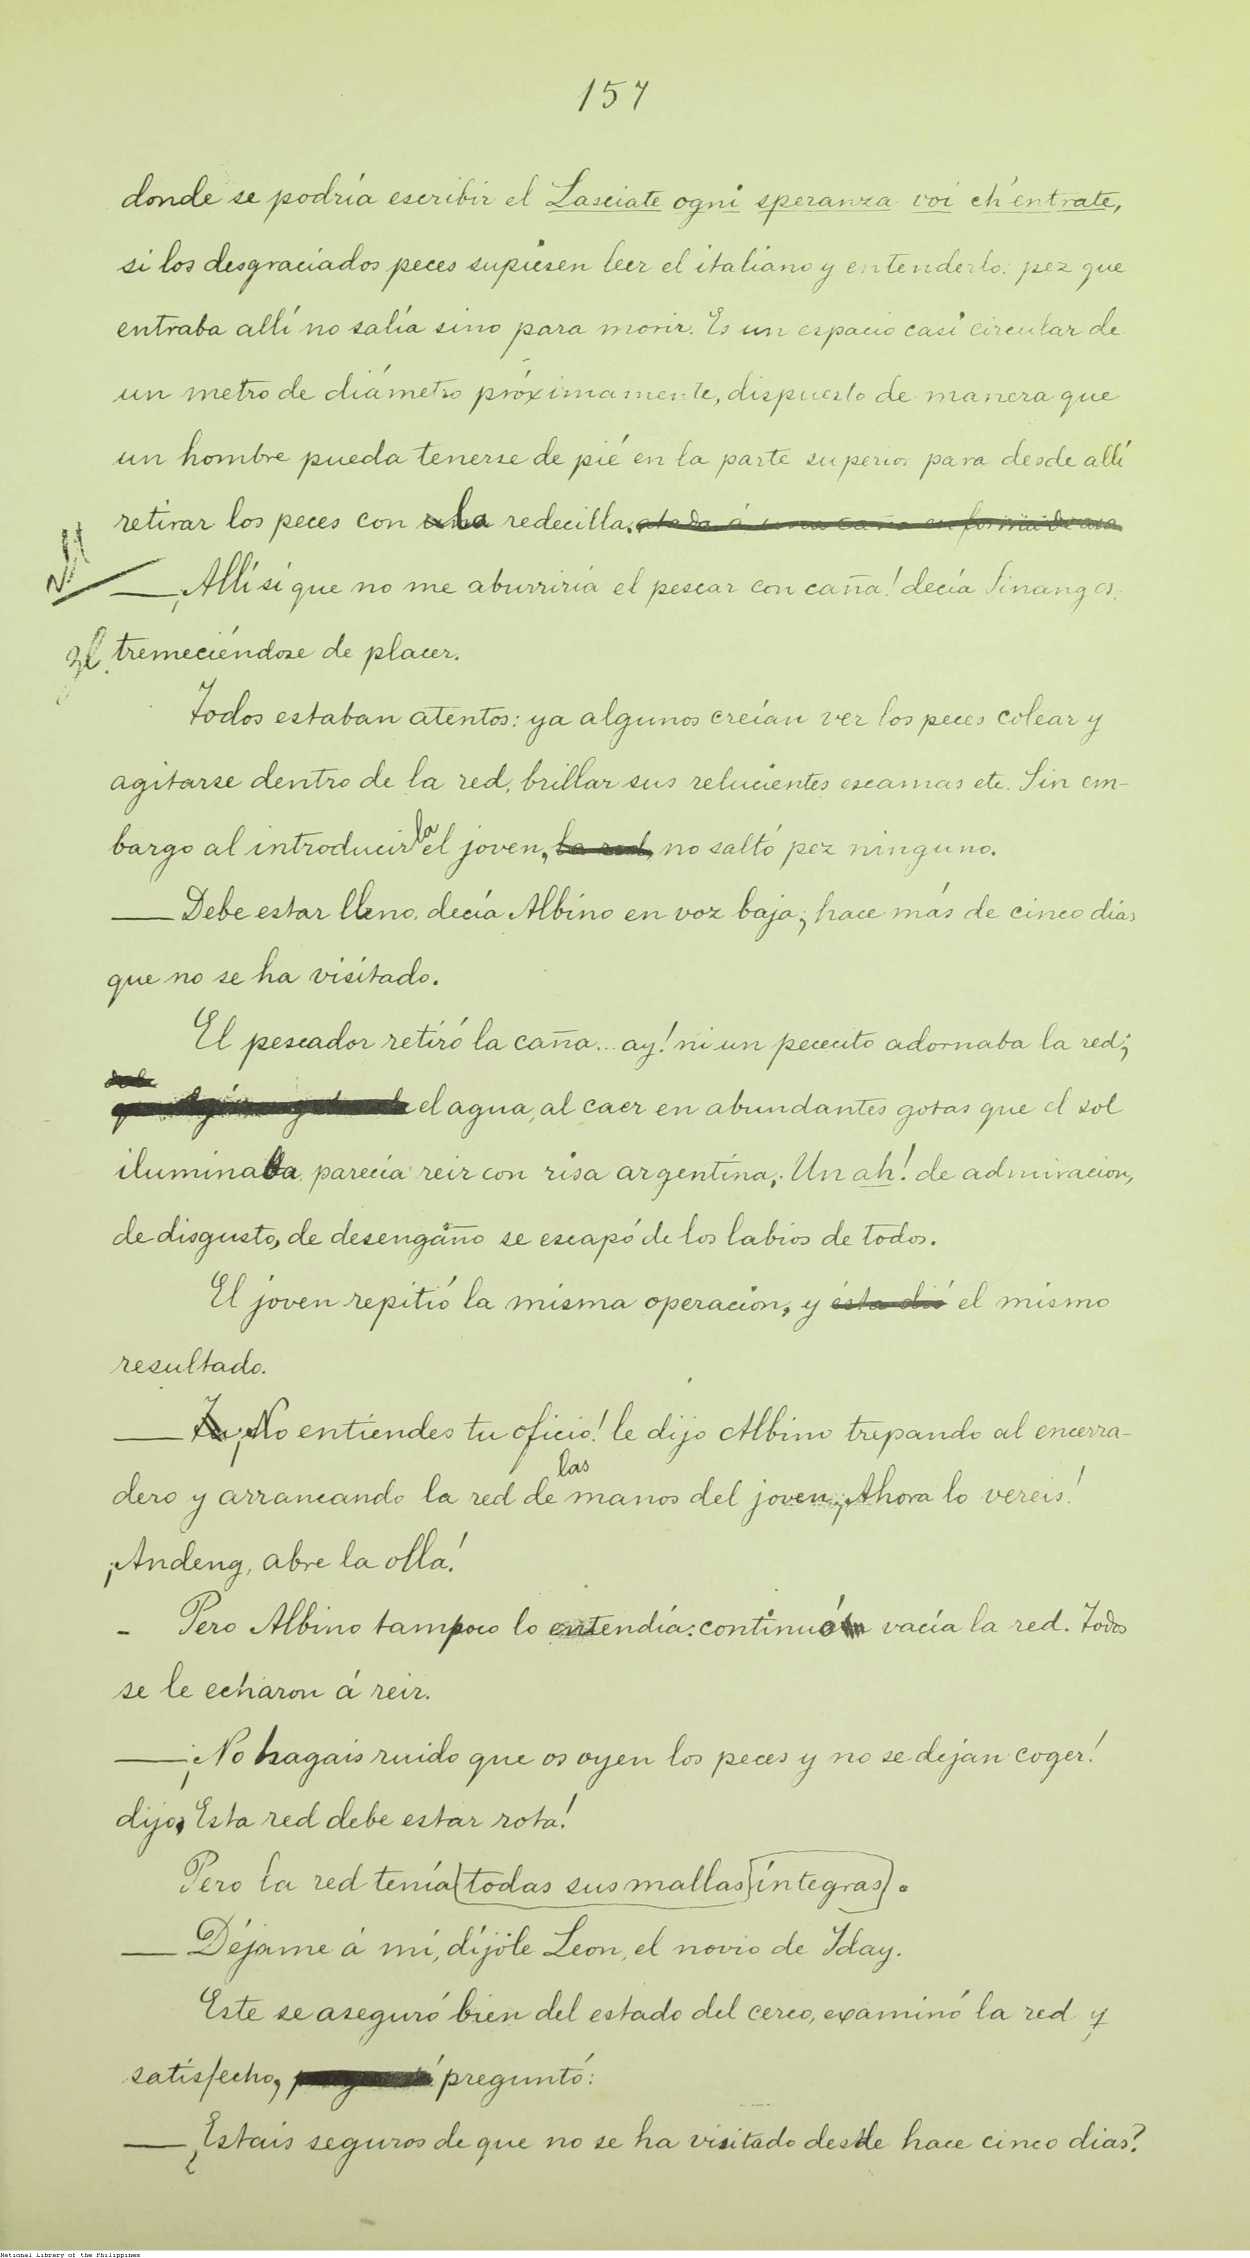 157
donde se podría escribir el Lasciate ogni speranza voi ch'entrate,
si los desgraciados peces supiesen leer el italiano y entenderlo: pez que
entraba allí no salía sino para morir. Es un espacio casi circular de
un metro de diámetro próximamente, dispuesto de manera que
un hombre pueda tenerse de pié en la parte superior para desde allí
retirar los peces con la redecilla, atada á una caña en forma de asa
—¡Allí sí que no me aburriría el pescar con caña! decía Sinang es,
tremeciéndose de placer.
Todos estaban atentos: ya algunos creían ver los peces colear y
agitarse dentro de la red, brillar sus relucientes escamas etc. Sin em-
bargo al introducir la el joven, la red, no saltó pez ninguno.
— Debe estar lleno, decía Albino en voz baja; hace más de cinco dias
que no se ha visitado.
El pescador retiró la caña... ay! ni un pececito adornaba la red;
el agua, al caer en abundantes gotas que el sol
iluminaba, parecía reir con risa argentina. Un ah! de admiracion,
de disgusto, de desengaño se escapó de los labios de todos.
El joven repitió la misma operacion, y ésta dió el mismo
resultado.
— Tu ¡No entiendes tu oficio! le dijo Albino trepando al encerra-
dero y arrancando la red de las manos del joven. ¡Ahora lo vereis!
¡Andeng, abre la olla!
- Pero Albino tampoco lo entendía: continuó vacía la red. Todos
se le echaron á reir.
— ¡No hagais ruido que os oyen los peces y no se dejan coger!
dijo, Esta red debe estar rota!
Pero la red tenía todas sus mallas íntegras.
— Déjame á mí, díjole Leon, el novio de Iday.
Este se aseguró bien del estado del cerco, examinó la red y
satisfecho, preguntó:
— ¿Estais seguros de que no se ha visitado desde hace cinco dias?
National Library of the Philippines